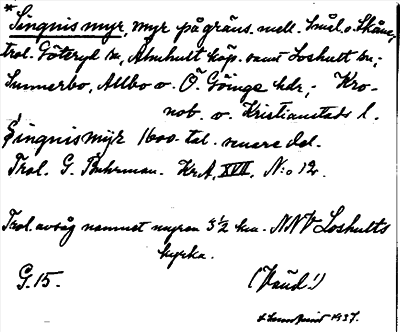 *Singnis myr, myr på gräns. mell. Smål. o. Skåne,
trol. Göteryd sn, Älmhult köp. samt Loshult sn.;
Sunnerbo, Allbo o. Ö Göinge hdr,; Kro-
nob. o. Kristianstads l.
Singnis myr 1600-tal. senare del.
Trol. G. Buhrman. Kr. A. XVII. N:o 12.
Trol. avsåg namnet myren 3½ km. NNV Loshults
kyrka.
G. 15.
1937.